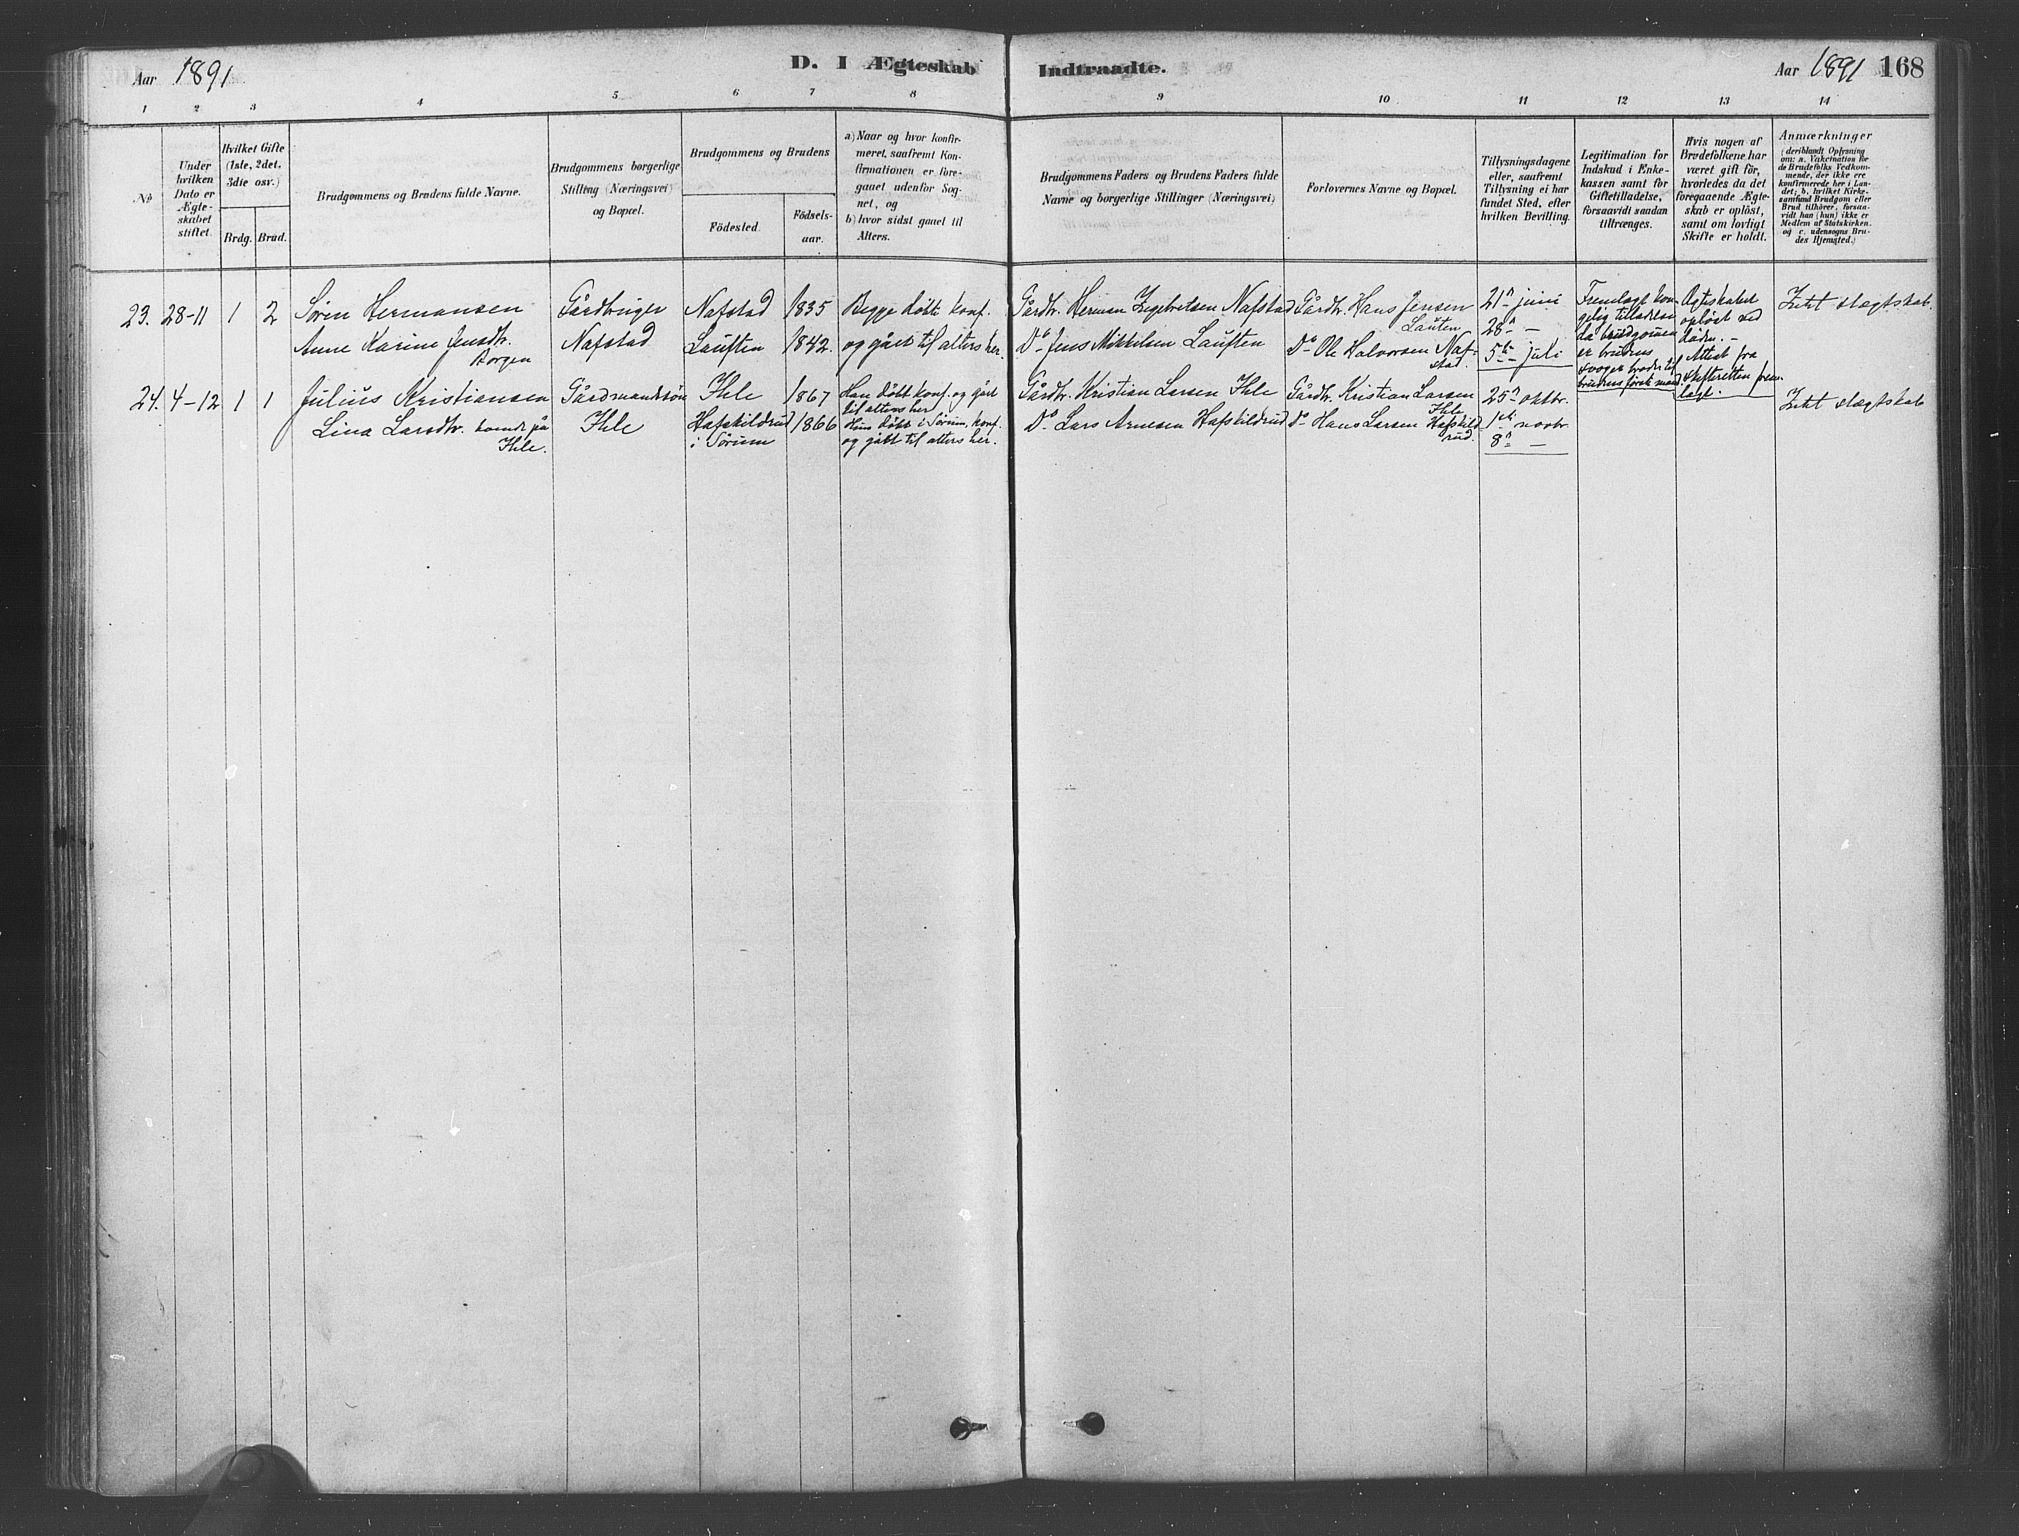 Aar 1891
D. I Ægteskab
Indtraadte.
Aar 1891 168
1 2 3 4 5 6 7 8 9 10 11 12 13 14
No
Under
hvilken
Dato er
Ægte-
skabet
stiftet.
Hvilket Gifte
(1ste, 2det,
3die osv.)
Brdg. Brud.
Brudgommens og Brudens fulde Navne.
Brudgommens borgerlige
Stilling (Næringsvei)
og Bopæl.
Brudgommens og Brudens
Födested.
Födsels-
aar.
a) Naar og hvor konfir-
meret, saafremt Kon-
firmationen er fore-
gaaet udenfor Sog-
net, og
b) hvor sidst gaaet til
Alters.
Brudgommens Faders og Brudens Faders fulde
Navne og borgerlige Stillinger (Næringsvei)
Forlovernes Navne og Bopæl.
Tillysningsdagene
eller, saafremt
Tillysning ei har
fundet Sted, efter
hvilken Bevilling.
Legitimation for
Indskud i Enke-
kassen samt for
Giftetilladelse,
forsaavidt saadan
tiltrænges.
Hvis nogen af
Brudefolkene har
været gift för,
hvorledes da det
foregaaende Ægte-
skab er oplöst,
samt om lovligt
Skifte er holdt.
Anmærkninger
(deriblandt Oplysning
om: a. Vakcination for
de Brudefolks Vedkom-
mende, der ikke ere
konfirmerede her i Lan-
det; b. hvilket Kirke-
samfund Brudgom eller
Brud tilhörer, forsaa-
vidt han (hun) ikke er
Medlem af Statskirken.
og c. udensogns Bru-
des Hjemsted.)
23. 28-11 1 2
Søren Hermansen
Anne Karine Jensdtr.
Borgen
Gårdbruger
Nafstad
Nafstad 1835
Lauften 1842.
Begge døbt konf.
og gået til alters her.
Gårdbr. Herman Engebretsen Nafstad
Do Jens Mikkelsen Lauften
Gårdbr. Hans Jensen
Lauten
Do Ole Halvorsen Naf-
stad.
21de juni
28de —
5te juli
Fremlagt kon-
gelig tilladelse
da brudgommen
er brudens
svoger broder til
brudens første mand
Ægteskabet
opløst ved
døden. -
Attest fra
skifteretten frem-
lagt.
Intet slægtskab.
24. 4-12 1 1
Julius Kristiansen
Lina Larsdtr. boende på
Ihle.
Gårdmandssøn
Ihle
Ihle 1867
Hafskildrud 1866
i Sørum
Han døbt konf. og gået
til alters her
Hun døbt i Sørum, konf.
og gått til alters her.
Gårdbr. Kristian Larsen Ihle
Do Lars Arnesen Hafskildrud
Gårdbr. Kristian Larsen
Ihle
Do Hans Larsen Hafskild-
rud.
25de oktbr.
1ste novbr.
8de —
Intet slægtskab